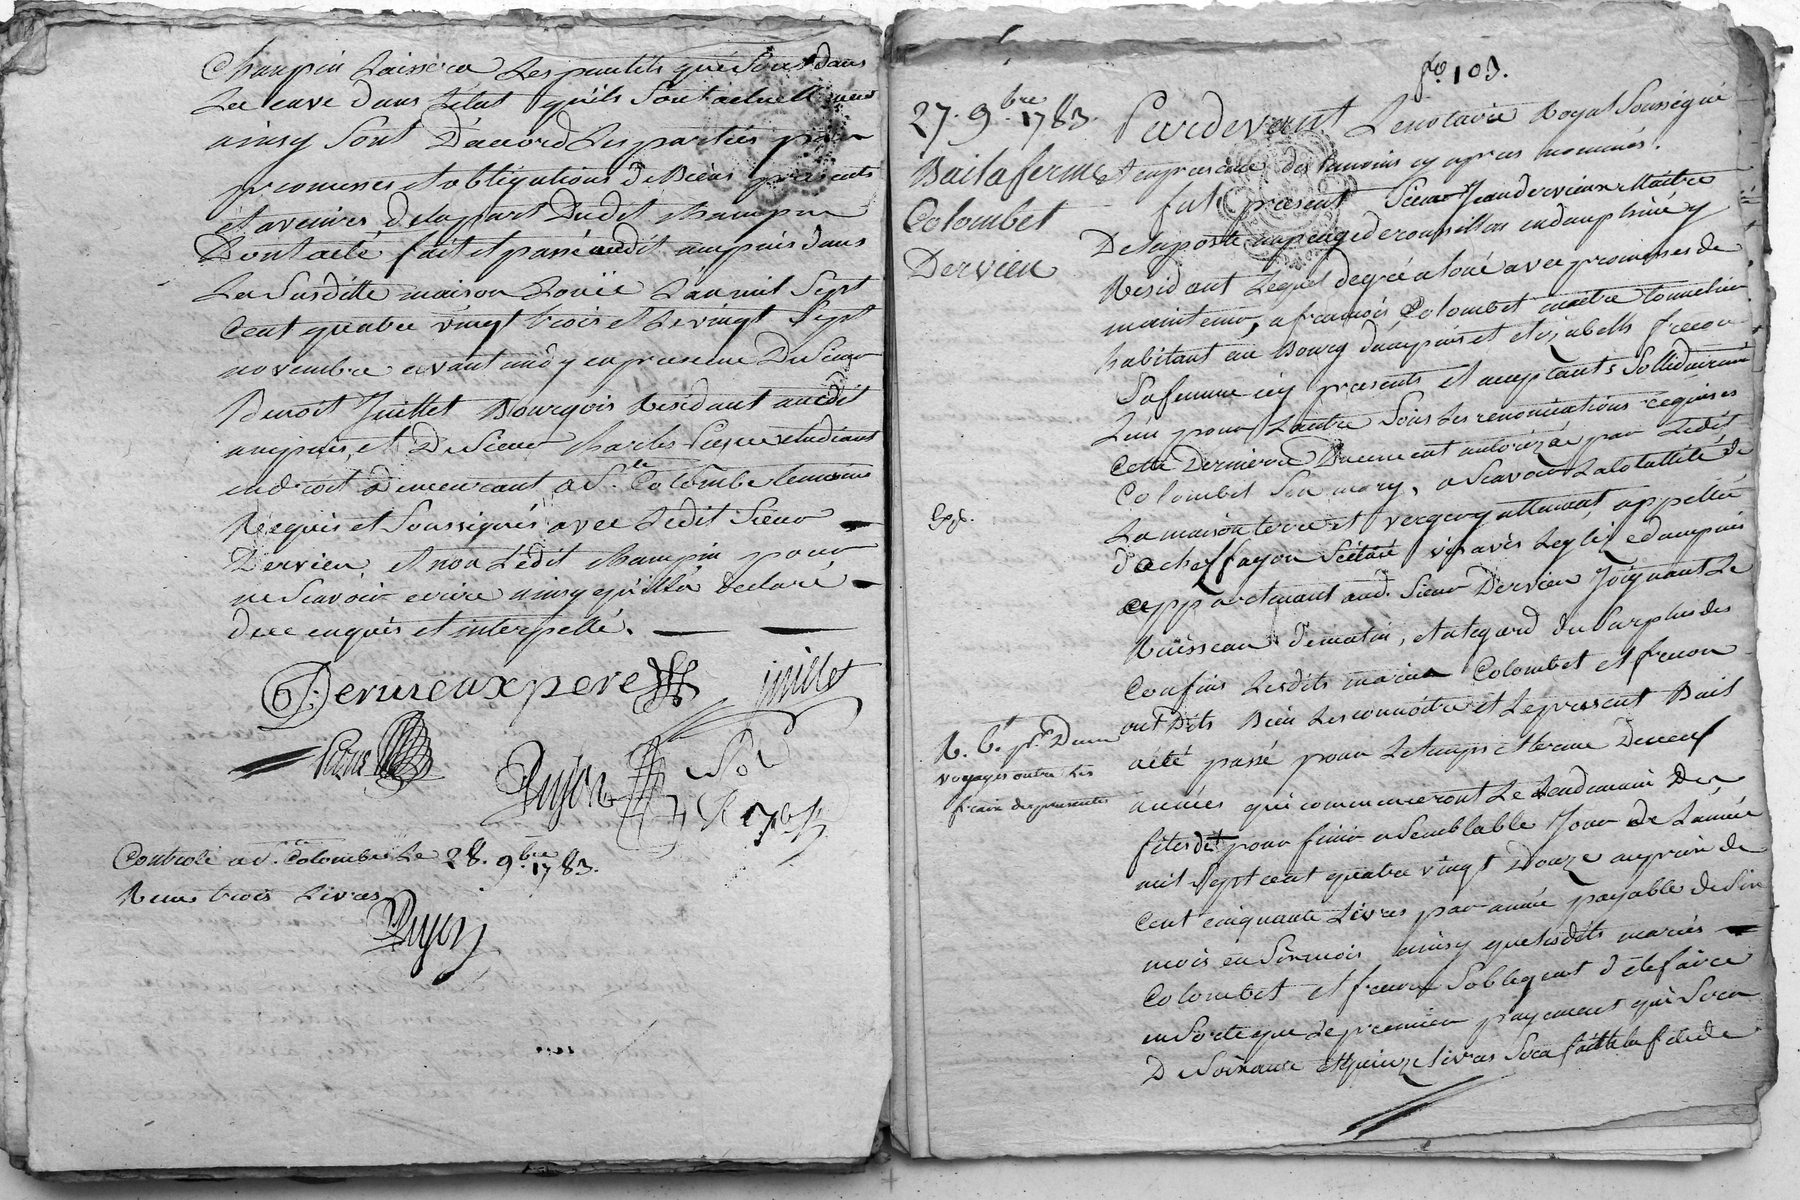 Champin Laissera Les pontils qui Sont dans
La cave dans L'état qu'ils Sont actuellement
ainsy Sont D'accord Les parties par
promesses et obligations De Biens presents
et avenirs de la part Dudit champin
Dont acte fait et passé audit ampuis dans
La Susditte maison Louée L'an mil Sept
Cent quatre vingt trois et Le vingt Sept
novembre avant midy en presence Du Sieur
Benoit Juillet Bourgois Residant audit
ampuis, et Du Sieur Charles etudiant
en droit demeurant a Ste Colombe temoins
Requis et Soussignés avec Ledit Sieur
Dervieu et non Ledit champin pour
ne Scavoir ecrire ainsy qu'il l'a declaré
de ce enquis et interpellé.
Dervieux pere juillet
Dujon
Controlé a Ste Colombe Le 28. 9bre 1783.
Reçu trois Livres
Dujon
fo. 103.
27. 9bre 1783.
Bail a ferme
Colombet
Dervieu
Pardevant Le notaire Royal Soussigné
et en presence des temoins cy apres nommés.
fut present Sieur Jean dervieux Maitre
De la poste au peage de roussillon en dauphiné y
Residant Lequel de gré a loué avec promesses de
maintenir, a francois Colombet maitre tonnelier
habitant au Bourg d'ampuis et elizabeth freron
Sa femme icy presents et acceptants Sollidairement
L'un pour L'autre Sous Les renonciations requises
Cette Derniere Duement autorizée par Ledit
Colombet Son mary, a Scavoir La totallité de
La maison terre et verger y attenant appellée
Scituée vis a vis L'eglise d'ampuis
appartenant aud. Sieur Dervieu Joignant Le
Ruisseau De matin, et a l'egard du Surplus des
Confins Lesdits mariés Colombet et freron
ont Dits Bien Les connoitre et Le present Bail
a été passé pour Le temps et terme De neuf
années qui commenceront Le Lendemain Des
fetes de pour finir a Semblable Jour de L'année
mil Sept cent quatre vingt Douze au prix de
Cent cinquante Livres par année payable de Six
mois en Six mois ainsy que lesdits mariés
Colombet et freron S'obligent de le faire
en Sorte que Le premier payement qui Sera
De Soixante et quinze livres Sera fait la fete de
Exp.
R. 6# pr. Deux
voyages outre Les
frais des presentes